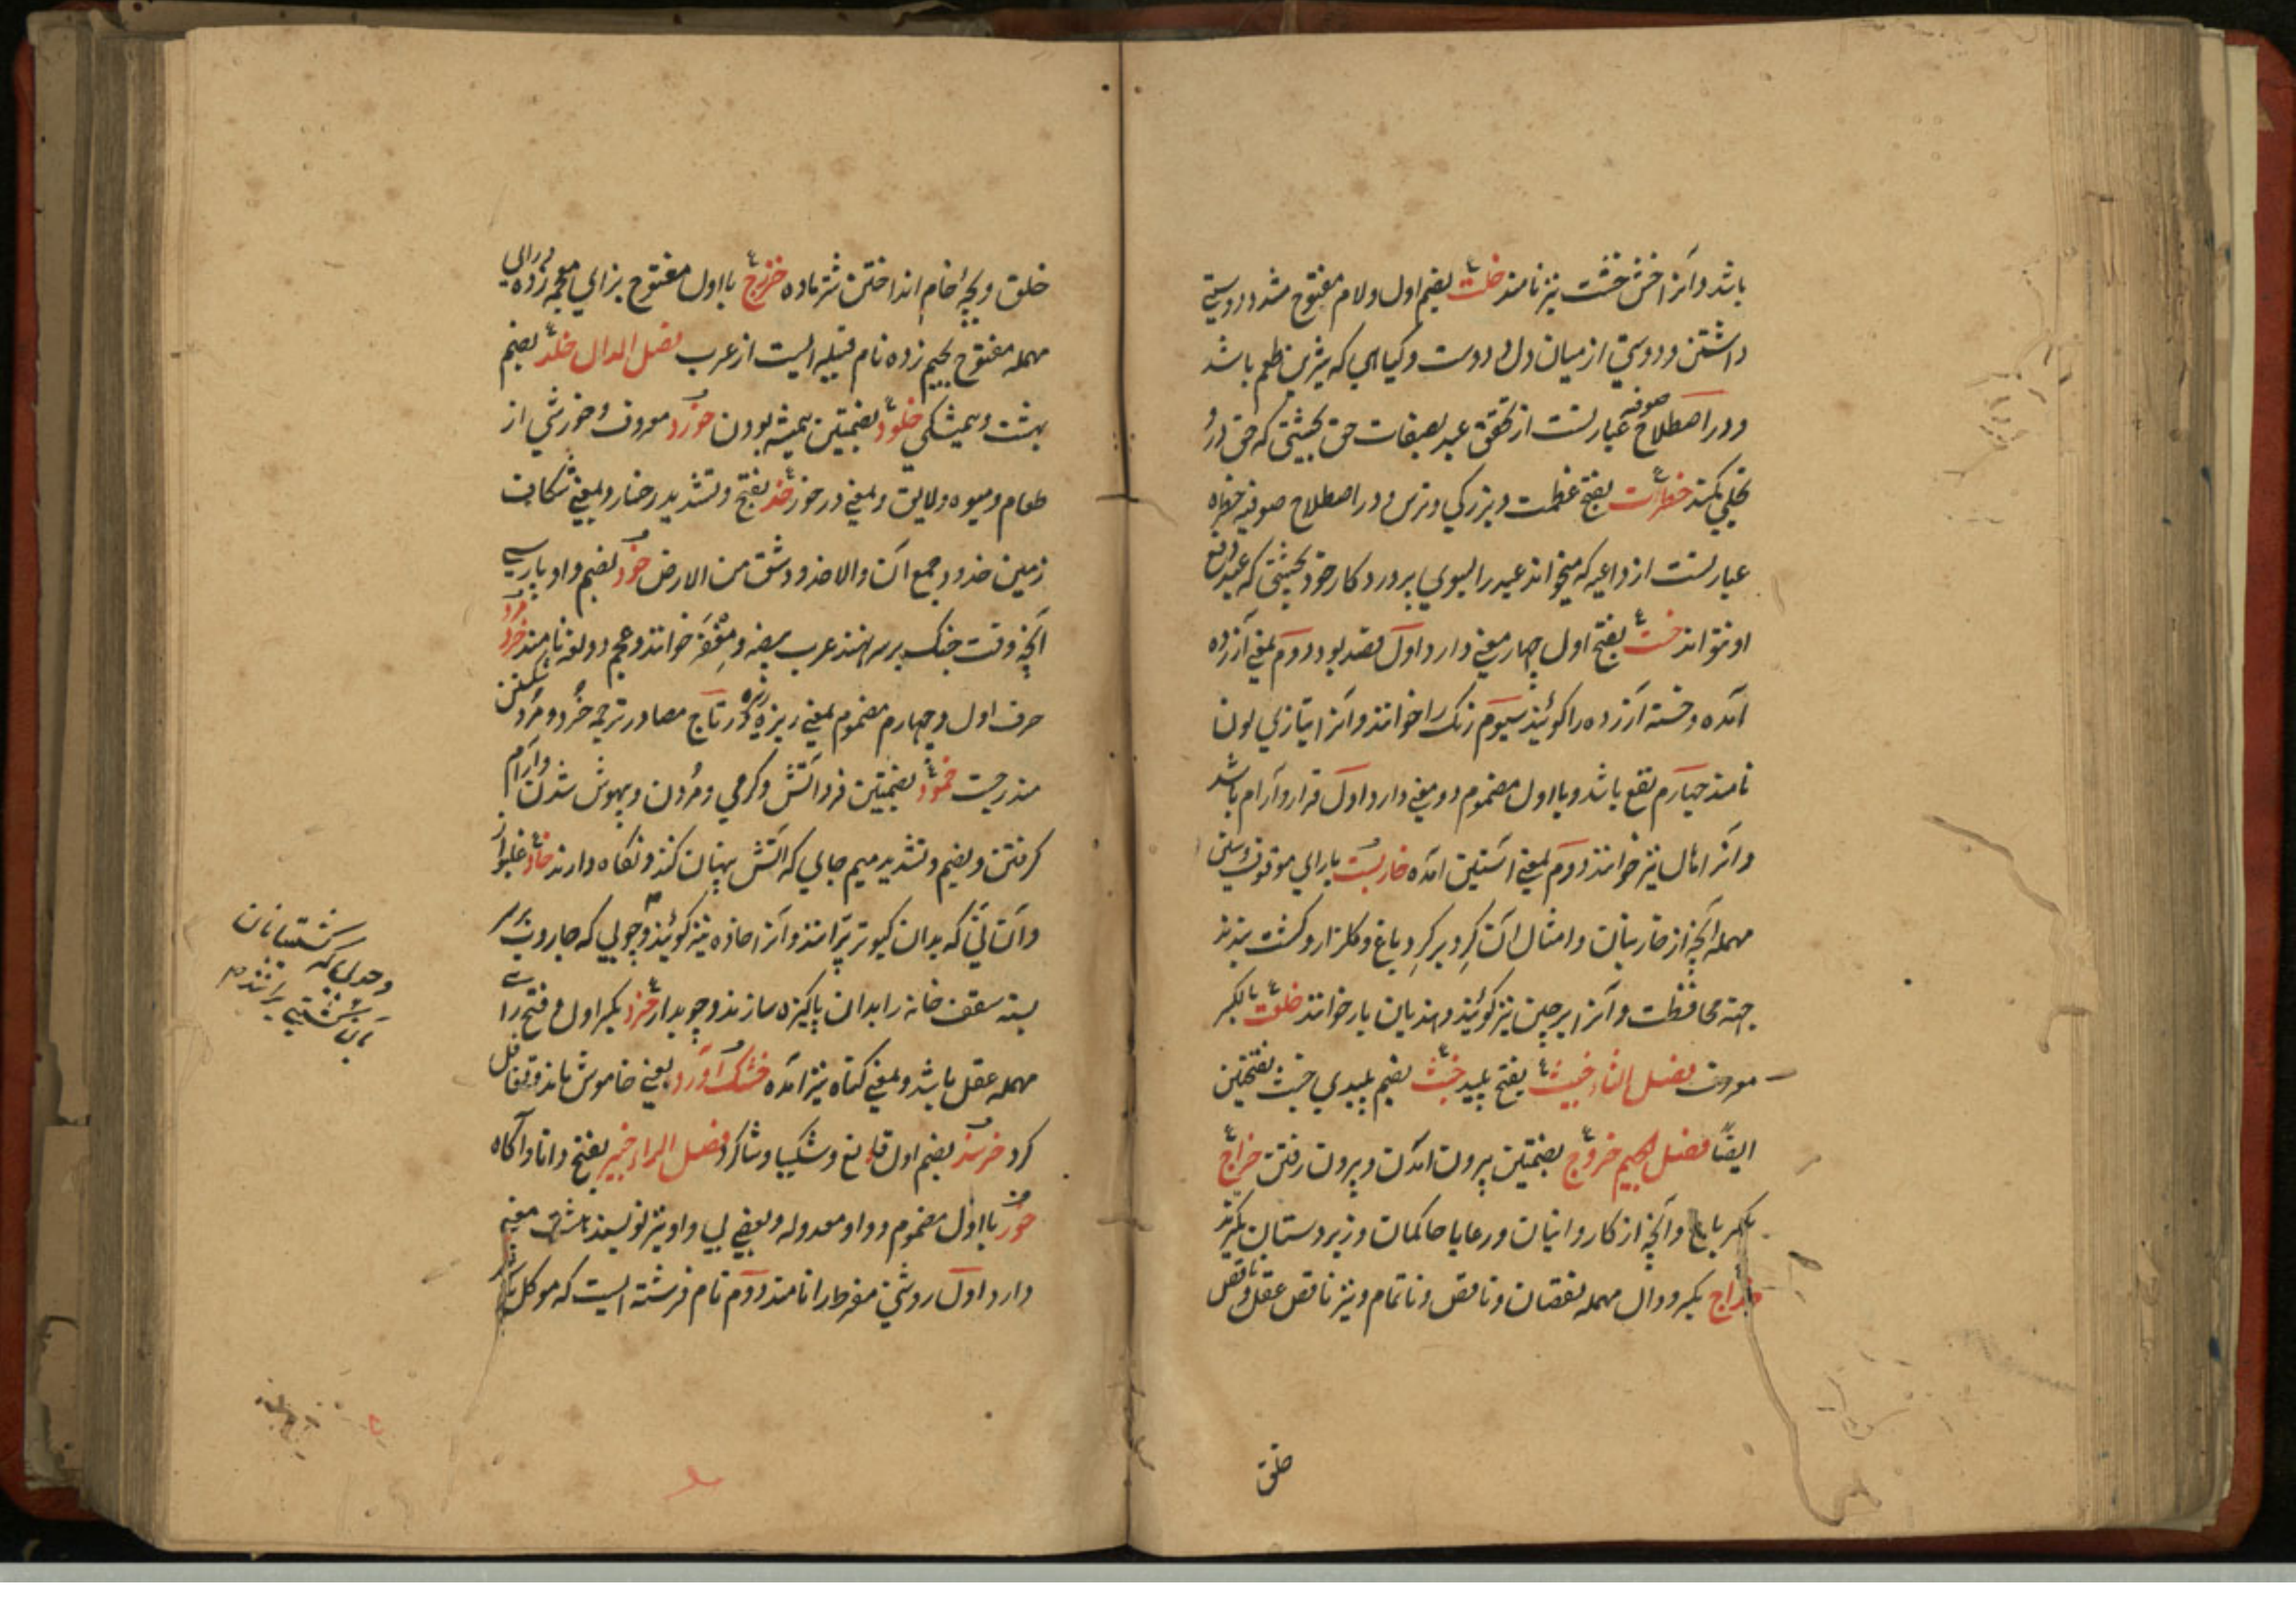 باشد و آنرا خش خشت نیز نامند خلت بضم اول و لام مفتوح مشدد دوستی
داشتن و دوستی از میان دل و دوست و کیاهی که شیرین طعم باشد
و در اصطلاح صوفیه عبارتست از تحقق عبد بصفات حق بحیثیتی که حق درو
تجلی بکند خطرات بفتح عظمت و بزرکی و ترس و در اصطلاح صوفیه
عبارتست از داعیه که میخواند عبد را بسوی پرورد کار خود بحیثیتی که عبد دفع
او نتواند خست بفتح اول چهار معنی دارد اول قصد بود دوم بمعنی آزرده
آمده و خسته آزرده را کویند سیوم رنک را خوانند و آنرا بتازی لون
نامند چهارم نفع باشد و با اول مضموم دو معنی دارد اول قرار و آرام باشد
و آنرا نیز خوانند دوم بمعنی آستین آمده خاربست بارای موقوف و سین
مهمله آنچه از خار بنان و امثال آن کرد بر کرد باغ و کلزار و کشت بندند
جهته محافظت و آنرا پرچین نیز کویند و هندیان بار خوانند خلقت بالکسر
معروف فصل الثاء خبیث بفتح پلید خبث بضم پلیدی خبث بفتحتین
ایضاً فصل الجیم خروج بضمتین بیرون آمدن و بیرون رفتن خراج
بکسر باج و آنچه از کاروانیان و رعایا حاکمان و زبردستان بکیرند
خداج بکسر و دال مهمله نقصان و ناقص و ناتمام و نیز ناقص عقل و ناقص
خلق
خلق و بچهٔ خام انداختن شتر ماده خزرج با اول مفتوح بزای معجمه زده و رای
مهمله مفتوح بجیم زده نام قبیله ایست از عرب فصل الدال خلد بضم
بهشت و همیشکی خلود بضمتین همیشه بودن خورد معروف و خورشی از
طعام و میوه و لایق و بمعنی در خور خد بفتح و تشدید رخسار و بمعنی شکاف
زمین خدود جمع آن والاخدود شق من الارض خود بضم و واو پارسی
آنچه وقت جنک بر سر نهند عرب بیضه و مغفر خوانند و عجم دولغه نامند خرد مرد
حرف اول و چهارم مضموم بمعنی ریزه ریزه و در تاج مصادر ترجمه خرد و مرد شکستن
مندرجست خمود بضمتین فرو آتش و کرمی و مردن و بیهوش شدن و آرام
کرفتن و بضم و تشدید میم جای که آتش پنهان کنند و نکاه دارند خاد غلیواز
و آن نی که بدان کبوتر پرانند و آنرا خاده نیز کویند و چوبی که جاروب بر سر
بسته سقف خانه را بدان پاکیزه سازند و چوبدار خرد بکسر اول و فتح رای
مهمله عقل باشد و بمعنی کناه نیز آمده خشک آورد یعنی خاموش ماند و تغافل
کرد خرسند بضم اول قانع و شکیبا و شاکر فصل الراء خبیر بفتح دانا و آکاه
خور با اول مضموم و واو معدوله و بعضی بی واو نیز نویسند شش معنی
دارد اول روشنی مفرط را نامند دوم نام فرشته ایست که موکل
و چوبی که کشتیبانان
بآن کشتی رانند